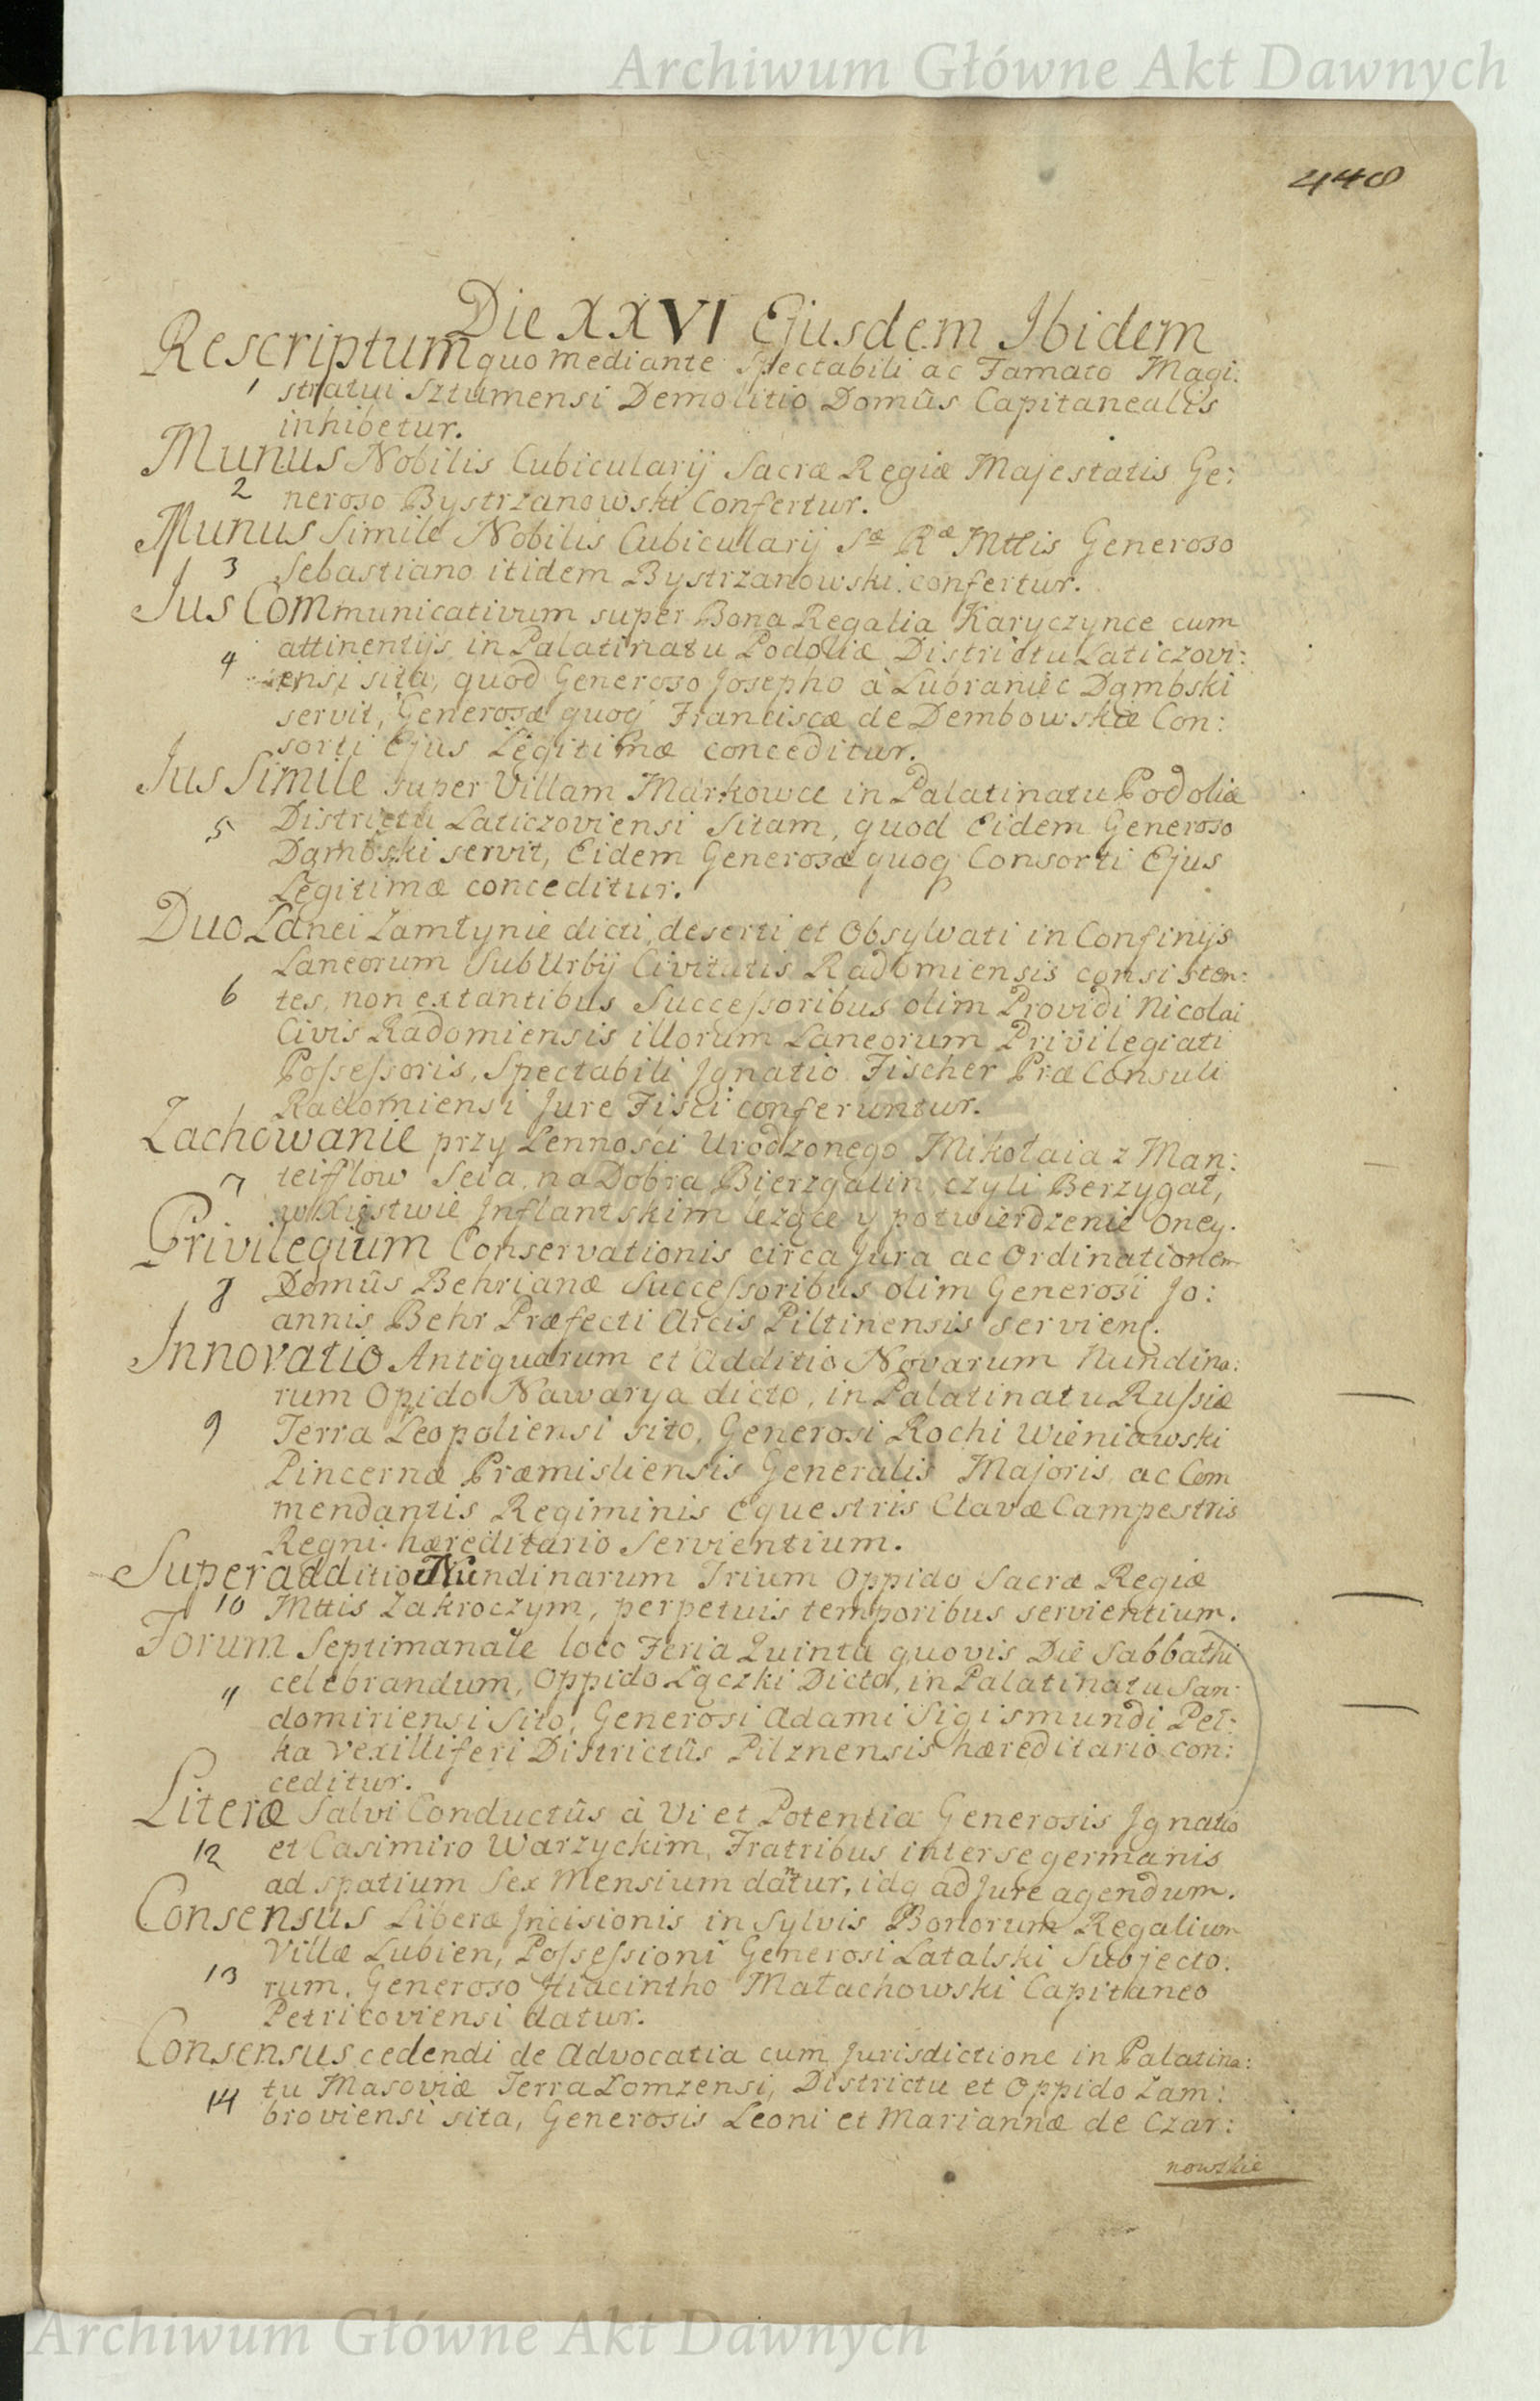 Archiwum Główne Akt Dawnych
448
Die XXVI Ejusdem Ibidem
Rescriptum quo mediante Spectabili ac Famato Magi:
1 stratui Sztumensi Demolitio Domûs Capitanealis
inhibetur.
Munus Nobilis Cubicularij Sacræ Regiæ Majestatis Ge:
2 neroso Bystrzanowski Confertur.
Munus Simile Nobilis Cubicularij Sæ Ræ Mttis Generoso
3 Sebastiano itidem Bystrzanowski confertur.
Jus Communicativum super Bona Regalia Karyczynce cum
attinentijs in Palatinatu Podoliæ Districtu Laticzovi:
4 ensi sita, quod Generoso Josepho à Lubraniec Dąmbski
servit, Generosæ quoq Franciscæ de Dembowskie Con:
sorti Ejus Legitimæ conceditur.
Jus Simile super Villam Markowce in Palatinatu Podoliæ
5 Districtu Laticzoviensi Sitam, quod Eidem Generoso
Dąmbski servit, Eidem Generosæ quoq Consorti Ejus
Legitimæ conceditur.
Duo Lanei Zamłynie dicti, deserti et Obsylvati in Confinijs
Laneorum SubUrbij Civitatis Radomiensis consisten:
6 tes, non extantibus Successoribus olim Providi Nicolai
Civis Radomiensis illorum Laneorum Privilegiati
Possessoris, Spectabili Jgnatio Fischer Præ Consuli
Radomiensi Jure Fisci conferuntur.
Zachowanie przy Lennosci Urodzonego Mikołaia z Man:
7 teifflow Seia, na Dobra Bierzgalin czyli Berzygał,
w Xięstwie Jnflantskim leżące y potwierdzenie Oney.
Privilegium Conservationis circa Jura ac Ordinationem
8 Domûs Behrianæ Successoribus olim Generosi Jo:
annis Behr Præfecti Arcis Piltinensis serviens.
Innovatio Antiquarum et Additio Novarum Nundina:
rum Opido Nawarya dicto, in Palatinatu Russiæ
9 Terra Leopoliensi sito, Generosi Rochi Wieniawski
Pincernæ Præmisliensis Generalis Majoris ac Com
mendantis Regiminis Equestris Clavæ Campestris
Regni hæreditario Servientium.
Superadditio Nundinarum Trium Oppido Sacræ Regiæ
10 Mttis Zakroczym, perpetuis temporibus servientium.
Forum Septimanale loco Feria Quinta quovis Die Sabbathi
11 celebrandum, Oppido Lączki Dicto, in Palatinatu San:
domiriensi Sito, Generosi Adami Sigismundi Peł:
ka Vexilliferi Districtûs Pilznensis hæreditario con:
ceditur.
Literæ Salvi Conductûs à Vi et Potentia Generosis Jgnatio
12 et Casimiro Warzyckim, Fratribus inter se germanis
ad spatium Sex Mensium dantur, idq ad Jure agendum.
Consensus Liberæ Jncisionis in Sylvis Bonorum Regalium
Villæ Lubien, Possessioni Generosi Latalski Subjecto:
13 rum, Generoso Hiacintho Małachowski Capitaneo
Petricoviensi datur.
Consensus cedendi de Advocatia cum Jurisdictione in Palatina:
14 tu Masoviæ Terra Lomzensi, Districtu et Oppido Zam:
broviensi sita, Generosis Leoni et Mariannæ de Czar:
nowskie
Archiwum Główne Akt Dawnych